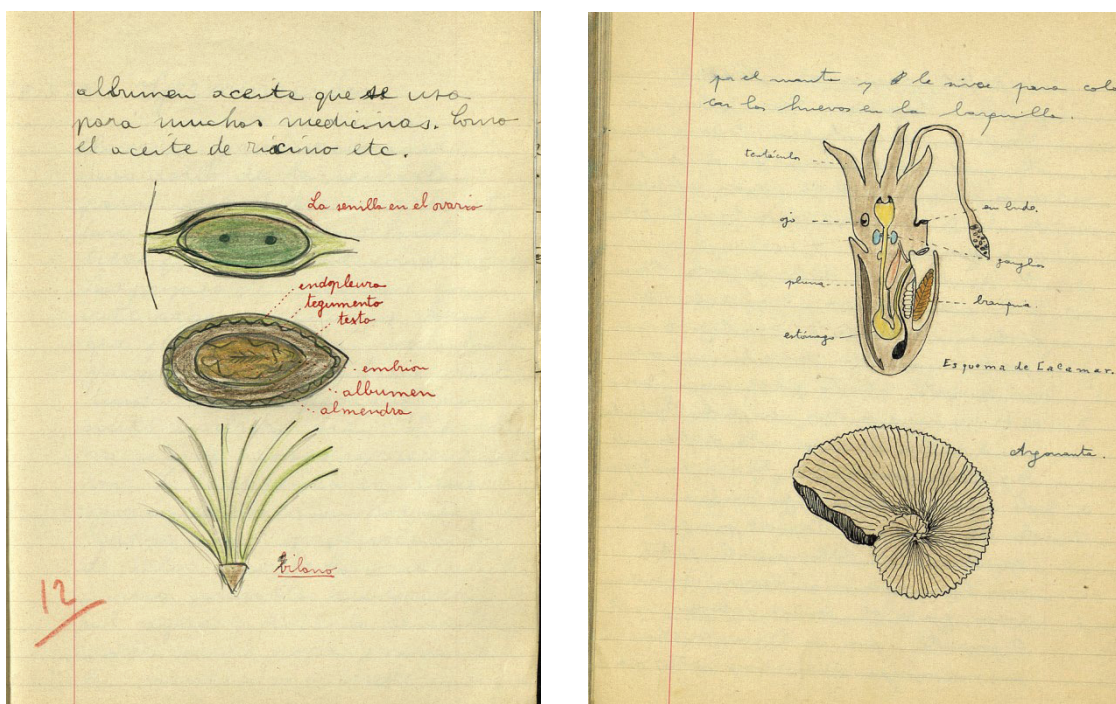 albumen aceite que se usa
para muchas medicinas. Como
el aceite de ricino etc.
La senilla en el ovario
endopleura
tegumento
testa
embrion
albumen
almendra
bilano
12
por el manto y le sirve para colo
car los huevos en la barquilla.
tentáculos
ojo
embudo.
ganglios
pluma
branquia
estómago
Esquema de Calamar.
Argonauta.